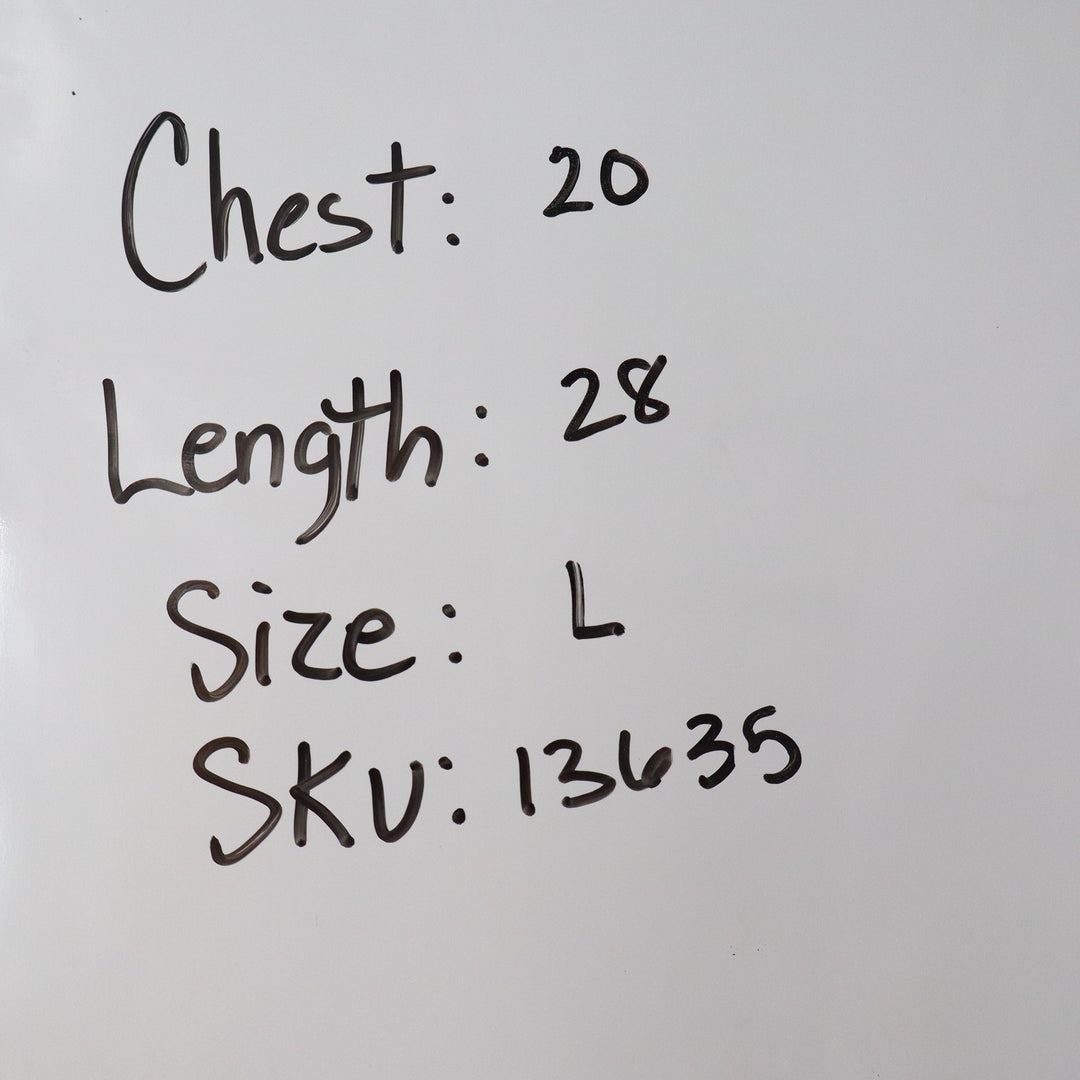 Chest: 20
Length: 28
Size: L
SKU: 13635